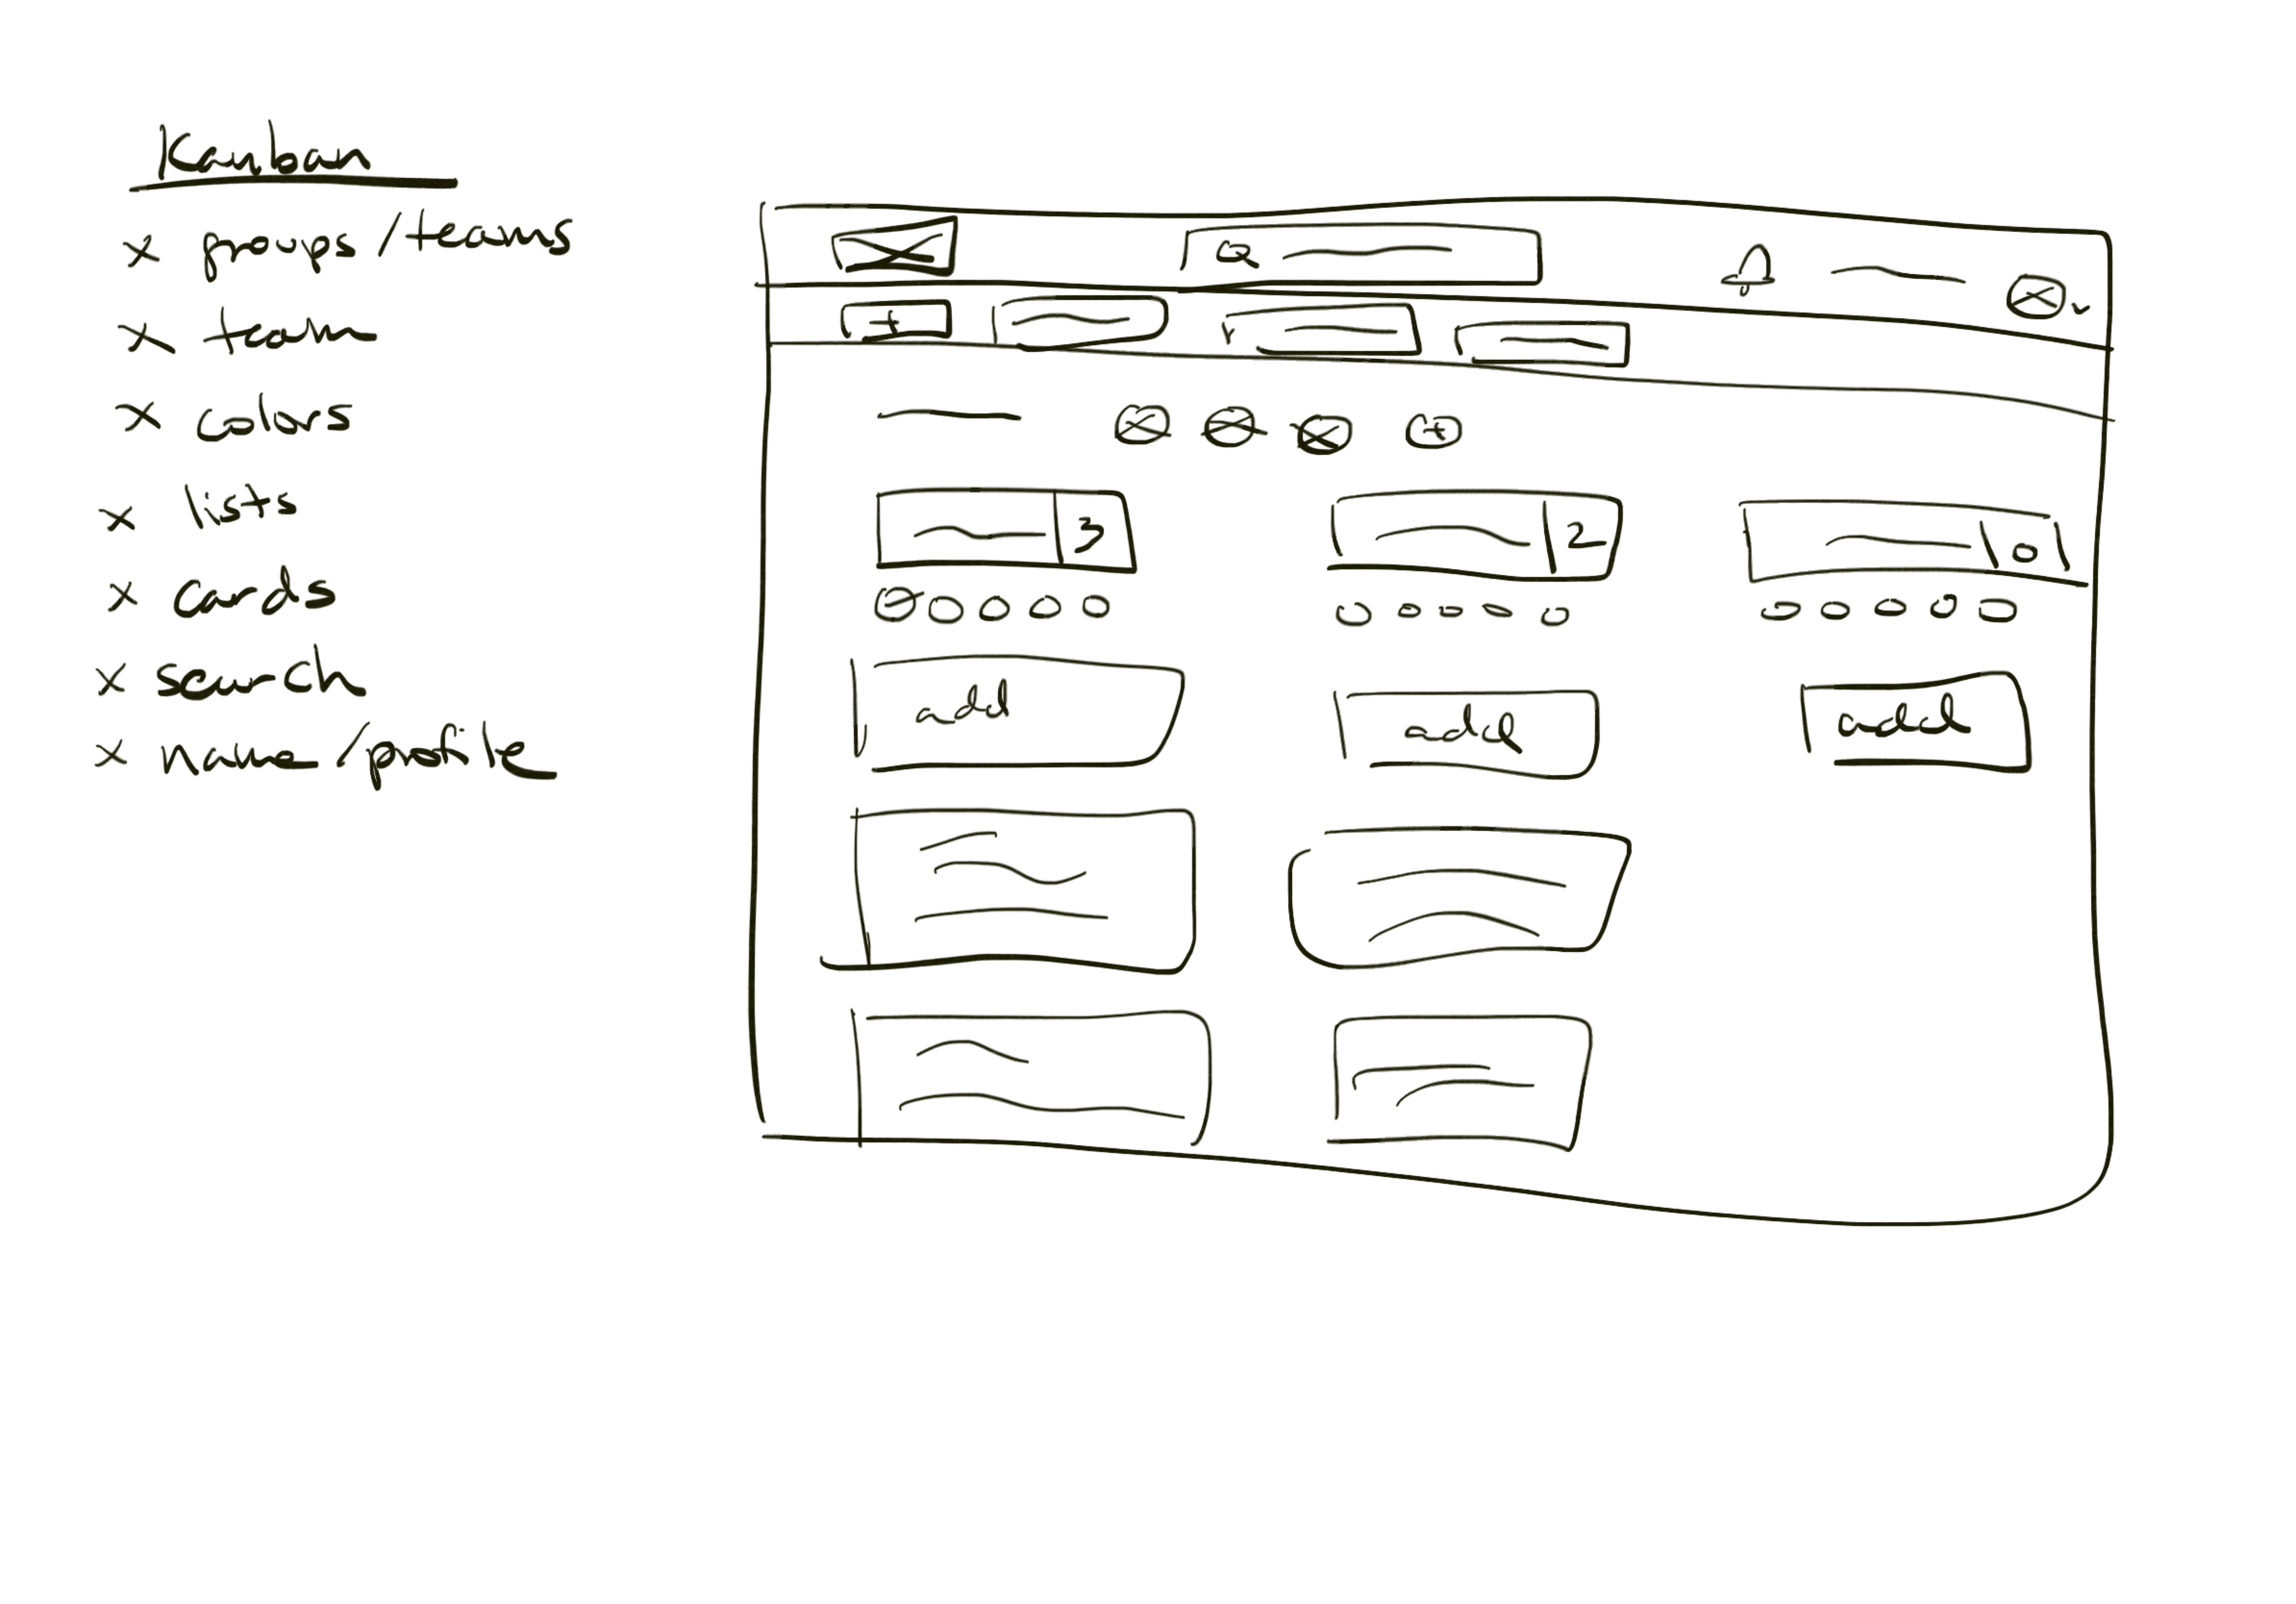 Kanban
x groups/teams
x team
x colors
x lists
x cards
x search
x name/profile
+
+
3
2
0
add
add
add